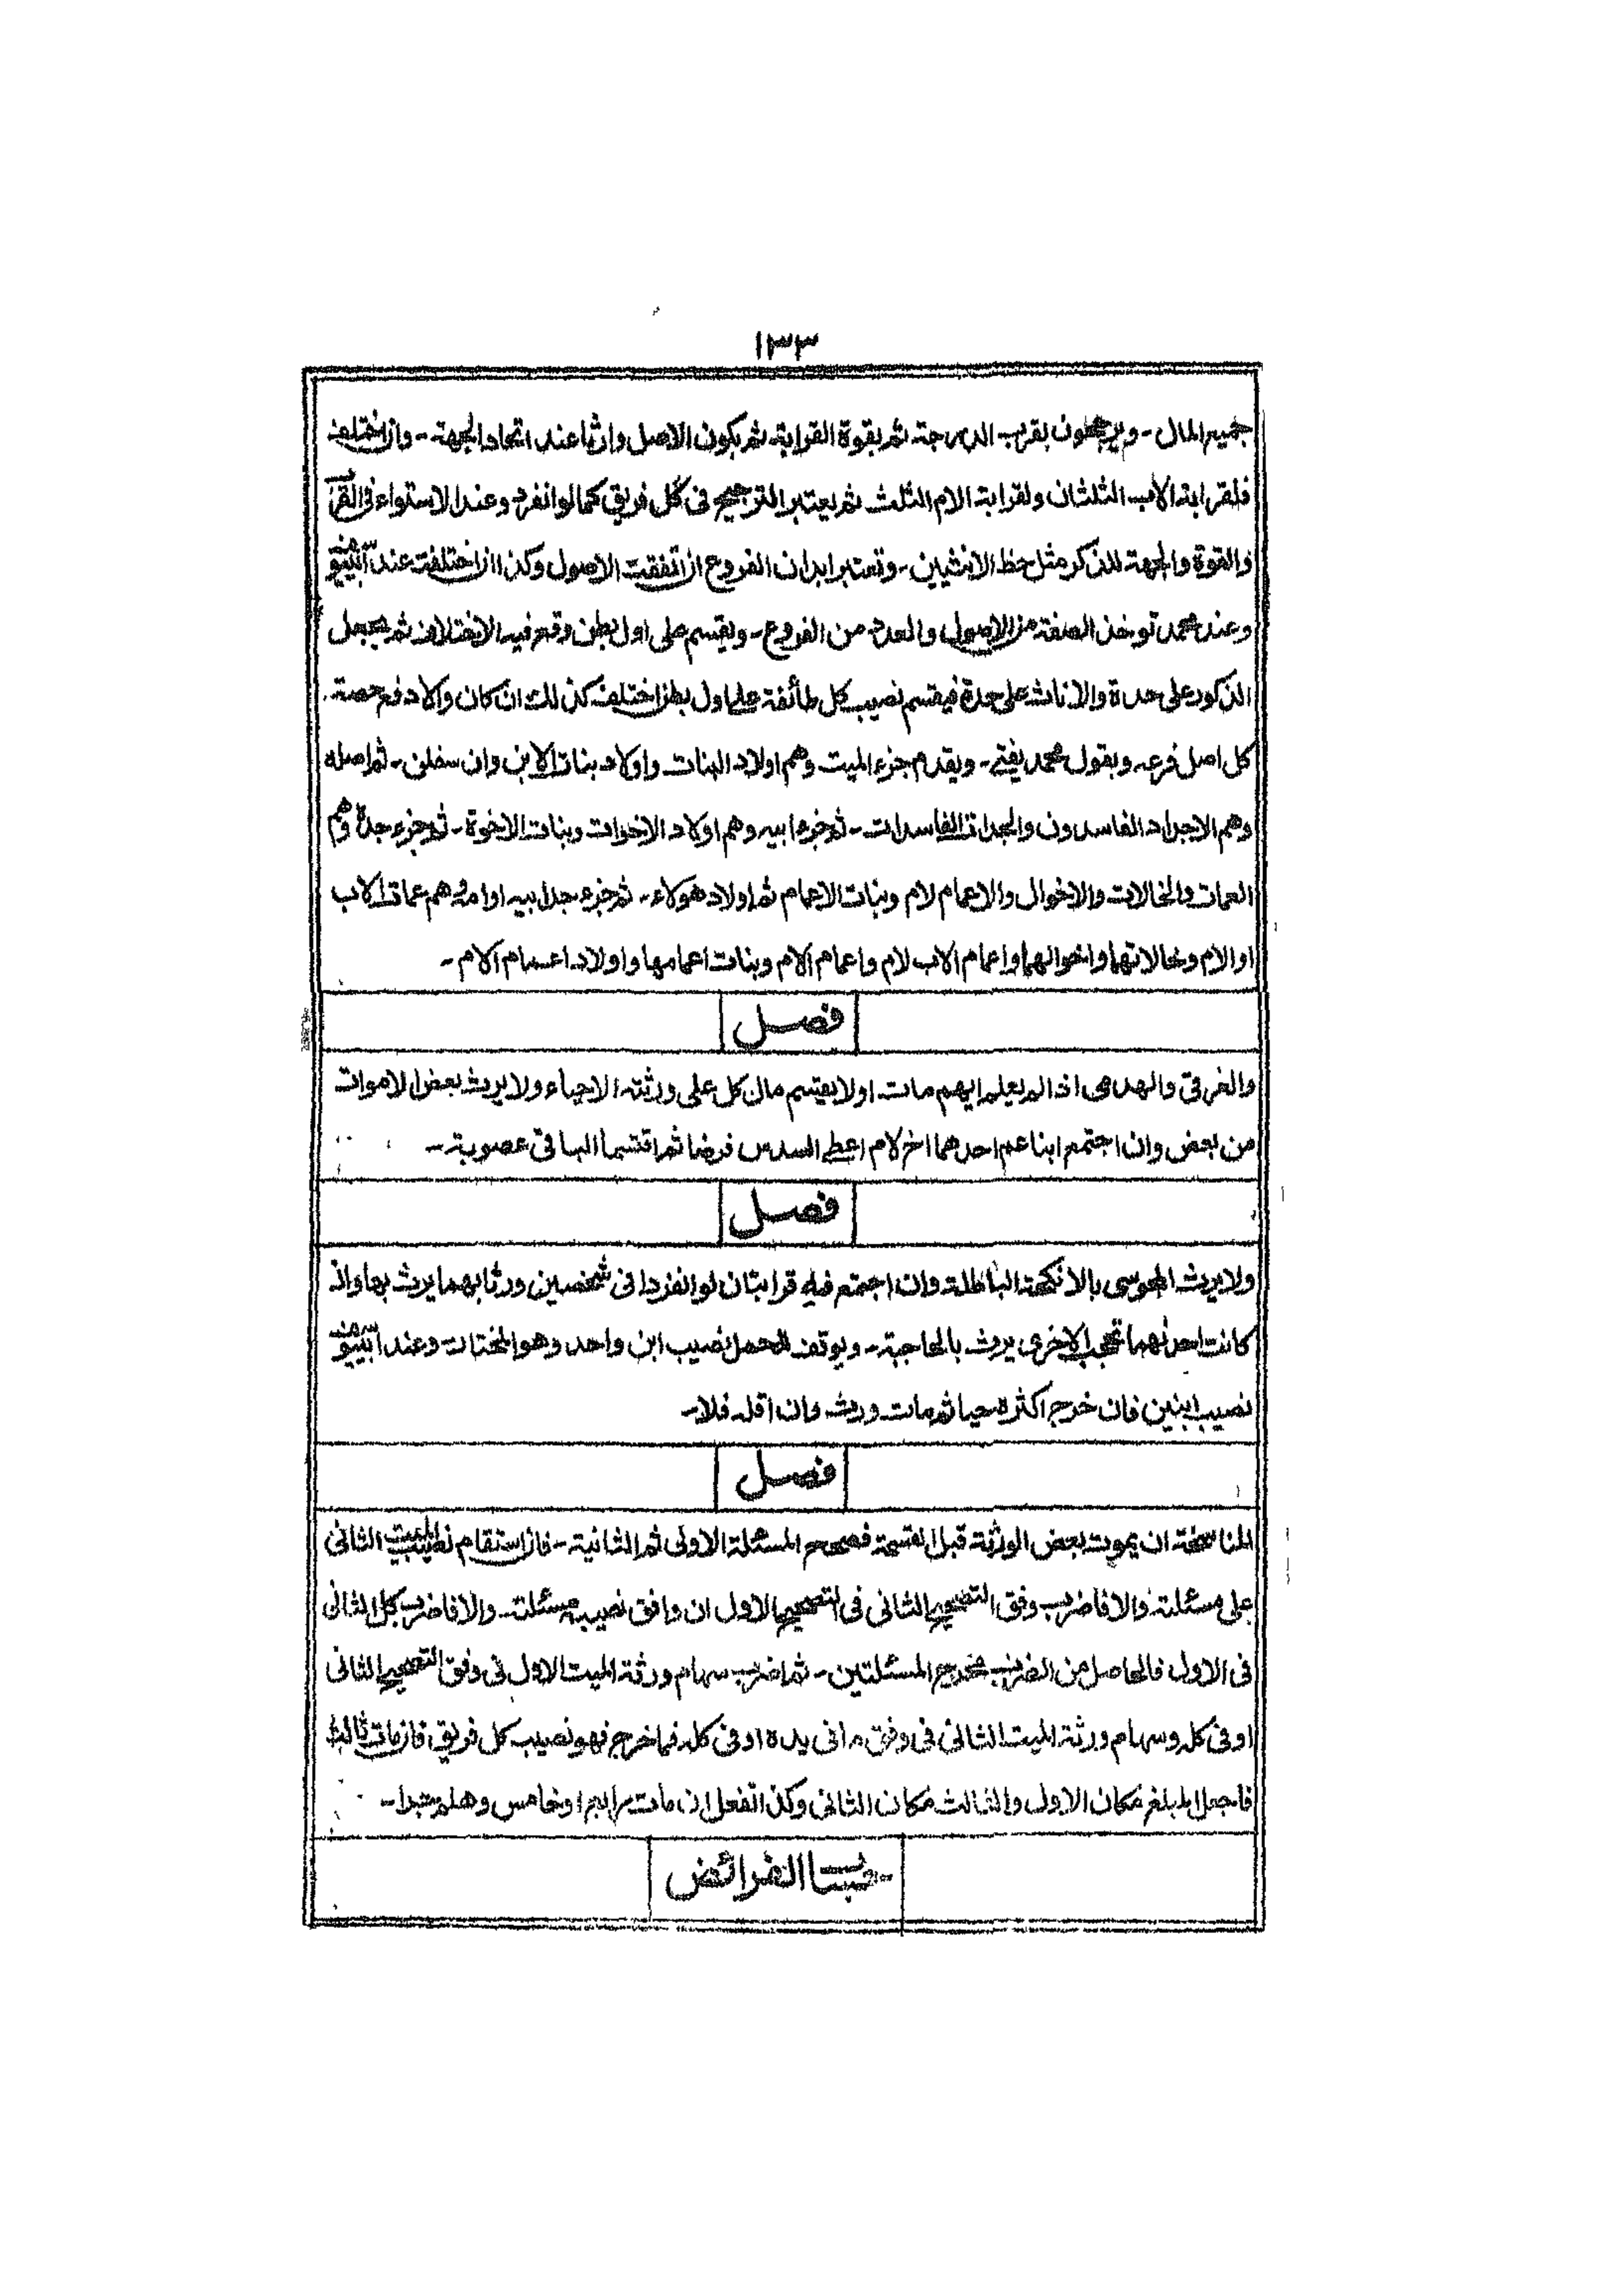 ١٣٣
جميع المال - ويرجحون بقرب الدرجة ثم بقوة القرابة ثم بكون الاصل وارثا عند اتحاد الجهة - وان اختلف
فلقرابة الاب الثلثان ولقرابة الام الثلث ثم يعتبر الترجيح فى كل فريق كما لو انفرد وعند الاستواء فى القرب
والقوة والجهة للذكر مثل حظ الانثيين - وتعتبر ابدان الفروع ان اتفقت الاصول وكذا ان اختلفت عند ابى يوسف
وعند محمد توخذ الصفة من الاصول والعدد من الفروع - ويقسم على اول بطن وقع فيه الاختلاف ثم يجعل
الذكور على حدة والاناث على حدة فيقسم نصيب كل طائفة على اول بطن اختلف كذلك ان كان والا دفع حصة
كل اصل فرعه وبقول محمد يفتى - ويقدم جزء الميت وهم اولاد البنات واولاد بنات الابن وان سفلن - ثم اصله
وهم الاجداد الفاسدون والجدات الفاسدات - ثم جزء ابيه وهم اولاد الاخوات وبنات الاخوة - ثم جزء جده وهم
العمات والخالات والاخوال والاعمام لام وبنات الاعمام ثم اولاد هولاء - ثم جزء جد ابيه او امه وهم عمات الاب
او الام وخالاتهما واخوالهما واعمام الاب لام واعمام الام وبنات اعمامها واولاد اعمام الام -
فصل
والغرقى والهدمى اذا لم يعلم ايهم مات اولا يقسم مال كل على ورثته الاحياء ولا يرث بعض الاموات
من بعض وان اجتمع ابنا عم احدهما اخ لام اعطى السدس فرضا ثم اقتسما الباقى عصوبة -
فصل
ولا يرث المجوسى بالانكحة الباطلة وان اجتمع فيه قرابتان لو انفردا فى شخصين ورثا بهما يرث بهما وان
كانت احدٰهما تحجب الاخرى يرث بالحاجبة - ويوقف للحمل نصيب ابن واحد وهو المختار وعند ابى يوسف
نصيب ابنين فان خرج اكثره حيا ثم مات ورث وان اقله فلا -
فصل
المناسخة ان يموت بعض الورثة قبل القسمة فصحح المسئلة الاولى ثم الثانية - فان استقام نصيب الميت الثانى
على مسئلته والا فاضرب وفق التصحيح الثانى فى التصحيح الاول ان وافق نصيبه مسئلته - والا فاضرب كل الثانى
فى الاول فالحاصل من الضرب مخرج المسئلتين - ثم اضرب سهام ورثة الميت الاول فى وفق التصحيح الثانى
او فى كله وسهام ورثة الميت الثانى فى وفق ما فى يده او فى كله فما خرج فهو نصيب كل فريق فان مات ثالث
فاجعل المبلغ مكان الاول والثالث مكان الثانى وكذا تفعل ان مات رابع او خامس وهلم جرا -
حساب الفرائض